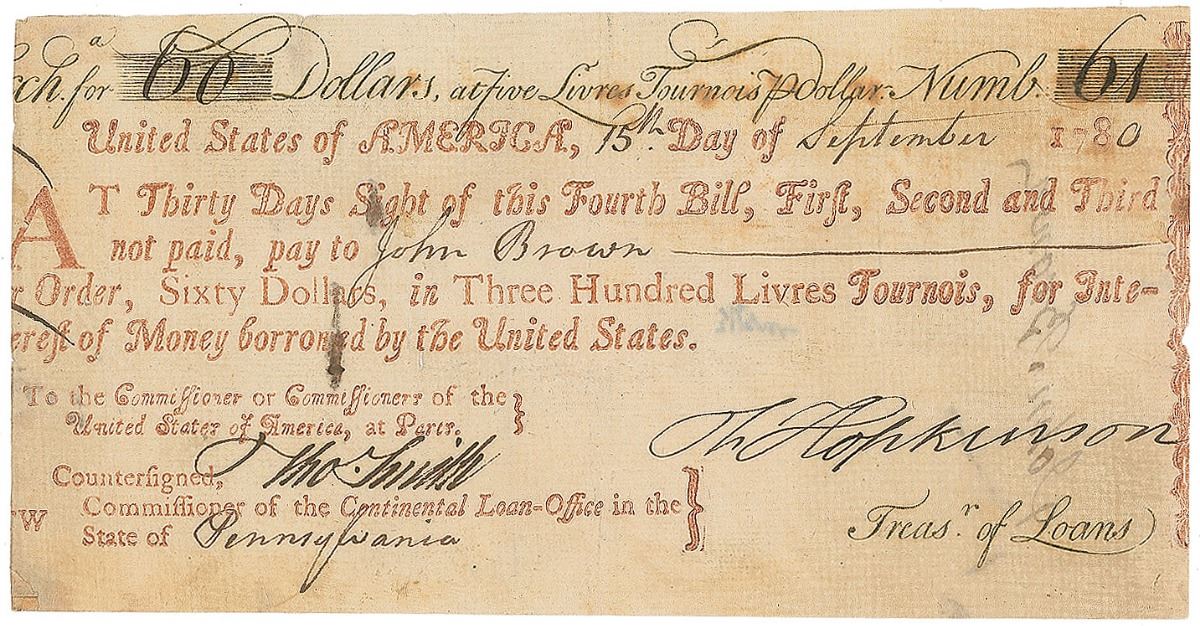 ch.ª for 60 Dollars, at five Livres Tournois ꝑ Dollar. Numb. 61
United States of AMERICA, 15th. Day of September 1780
AT Thirty Days Sight of this Fourth Bill, Firſt, Second and Third
not paid, pay to John Brown
r Order, Sixty Dollars, in Three Hundred Livres Tournois, for Inte-
ereſt of Money borrowed by the United States.
To the Commiſſioner or Commiſſioners of the
United States of America, at Paris.
Countersigned, Tho. Smith
Commiſſioner of the Continental Loan-Office in the
State of Pennsylvania
Hopkinson
Treasr. of Loans